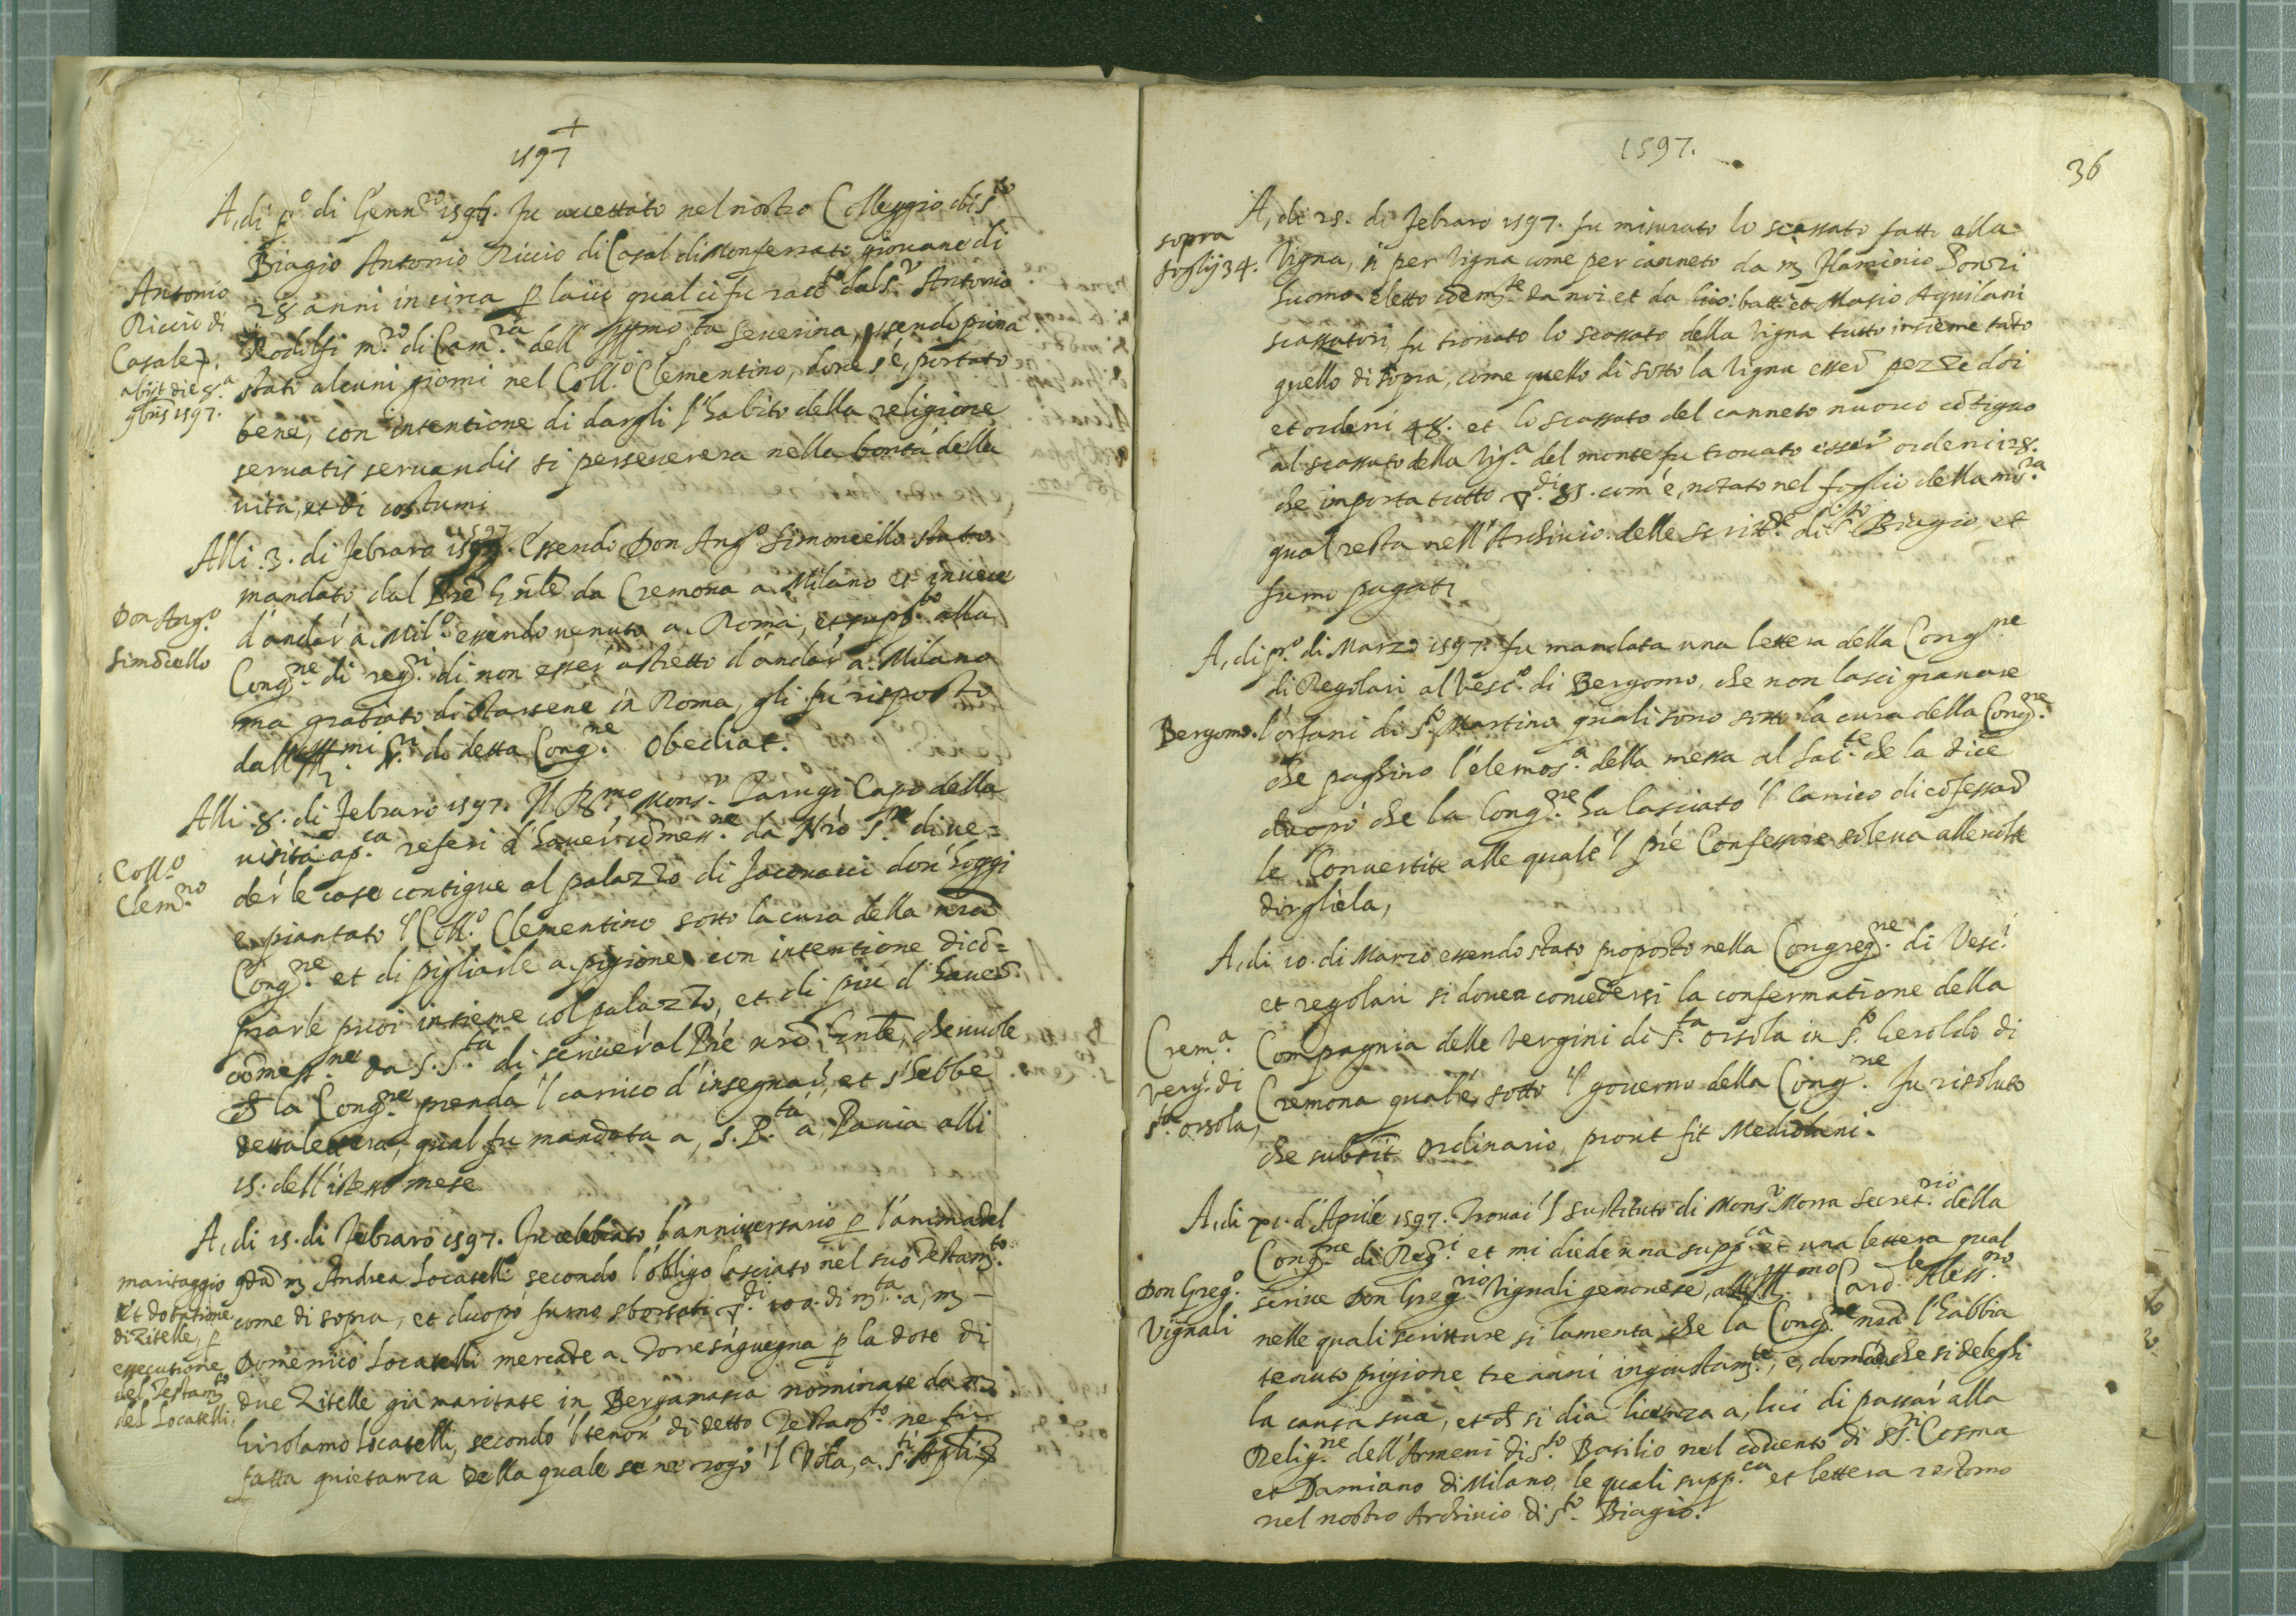 +
1597
A, di p.º di Genn.ro 1597. Fu accettato nel nostro Colleggio di S.to
Biagio Antonio Riccio di Casal di Monferrato giovane di
28 anni in circa p la cui qual ci fu racc.to dal S.r Antonio
Rodolfi m.ro di Cam.ra dell' Ill.mo S.ta Severina, essendo prima
stato alcuni giorni nel Coll.º Clementino, dove s'è, portato
bene, con intentione di dargli l'habito della religione
servatis servandis si persevererà nella bontà della
vita, et di costumi
Antonio
Riccio di
Casale
abijt die 8.a
9bris 1597.
Alli .3. di Febraro 1597. Essendo Don Ang.º Simoncello stato
mandato dal Pre Gnle da Cremona a Milano et invece
d'andar' a, Mil.º essendo venuto a Roma, et supp.to alla
Cong.ne di reg.ri di non esser' astretto d'andar' a Milano
ma gratiato di starsene in Roma, gli fu risposto
dall' Ill.mi Sri. di detta Cong.ne Obediat.
Don Ang.º
Simoncello
Alli .8. di Febraro 1597. Il R.mo Mons.r Tarugi Capo della
visita ap.ca referì d'haver' commess.ne da Nro S.re di ve=
der' le case contigue al palazzo di Jacovacci dov' hoggi
è, piantato 'l Coll.º Clementino sotto la cura della nra
Cong.ne et di pigliarle a pigione, con intentione di co=
prarle puoi insieme col palazzo, et di più d'haver
comess.ne da S. S.tà di scriver' al Pre nro Gnle, che vuole
che la Cong.ne prenda 'l carrico d'insegnar', et s'hebbe
detta lettera, qual fu mandata a, S. P.tà a, Pavia alli
15. dell' istesso mese
Coll.º
Clem.no
A, di 15. di Febraro 1597. Fu celebrato l'anniversario p l'anima del
qda m Andrea Locatelli secondo l'obligo lasciato nel suo Testam.to
come di sopra, et duopò furno sborsati di 100. di m.ta a, m
Domenico Locatelli mercate a Torresanguegna p la dote di
due Zitelle già maritate in Bergamasca nominate da m
Girolamo Locatelli, secondo 'l tenor' di detto Testam.to ne fu
fatta quietanza della quale se ne rogò 'l Vola, a. S.ti Apli
maritaggio
et dotatione
di Zitelle, p
essecutione
del Testam.to
del Locatelli.
1597.
36
A, di 25. di Febraro 1597. fu misurato lo scassato fatto alla
Vigna, sì per Vigna come per canneto da m Flaminio Ponzi
huomo eletto coem.te da noi et da Gio: batt.a et Masio Aquilani
scassatori fu trovato lo scassato della Vigna tutto insieme tanto
quello di sopra, come quello di sotto la Vigna esser pezze doi
et ordeni 48. et lo scassato del canneto nuovo cotiguo
al scassato della Vig.a del monte fu trovato esser' ordeni 28.
che importa tutto di 85. com'è, notato nel foglio della mis.ra
qual resta nell' Archivio delle scritt.e di S.to Biagio et
furno pagati
sopra
foglij 34.
A, di p.º di Marzo 1597. fu mandata una lettera della Cong.ne
di Regolari al Vesc.º di Bergomo, che non lasci gravare
l'orfani di S.to Martino quali sono sotto la cura della Cong.ne
che paghino l'elemos.a della messa al Sac.te che la dice
duopò che la Cong.ne ha lasciato 'l carrico di cofessar
le Convertite alle quale 'l pre Confessore soleva alle volte
dirgliela,
Bergomo.
A, di 10. di Marzo essendo stato proposto nella Congreg.ne di Vesc.i
et regolari si dovea concedersi la confermatione della
Compagnia delle Vergini di S.ta Orsola in S.to Geroldo di
Cremona qual'è, sotto 'l governo della Cong.ne fu risoluto
che subsit Ordinario, prout fit Mediolani.
Crem.a
Verg. di
S.ta Orsola,
A, di 21. d'Aprile 1597. Trovai 'l sustituto di Mons.r Morra Secret.rio della
Cong.ne di Reg.ri et mi diede una supp.ca et una lettera qual
scrive Don Greg.rio Vignali gemonese, all' Ill.mo Card.le Aless.no
nelle quali scritture si lamenta che la Cong.ne nra l'habbia
tenuto prigione tre anni ingiustam.te, e, domada che si deleghi
la causa sua, et che si dia licenza a, lui di passar' alla
Relig.ne dell' Armeni di S.to Basilio nel covento di SS.ri Cosma
et Damiano di Milano, le quali supp.ca et lettera restorno
nel nostro Archivio di S.to Biagio.
Don Greg.º
Vignali